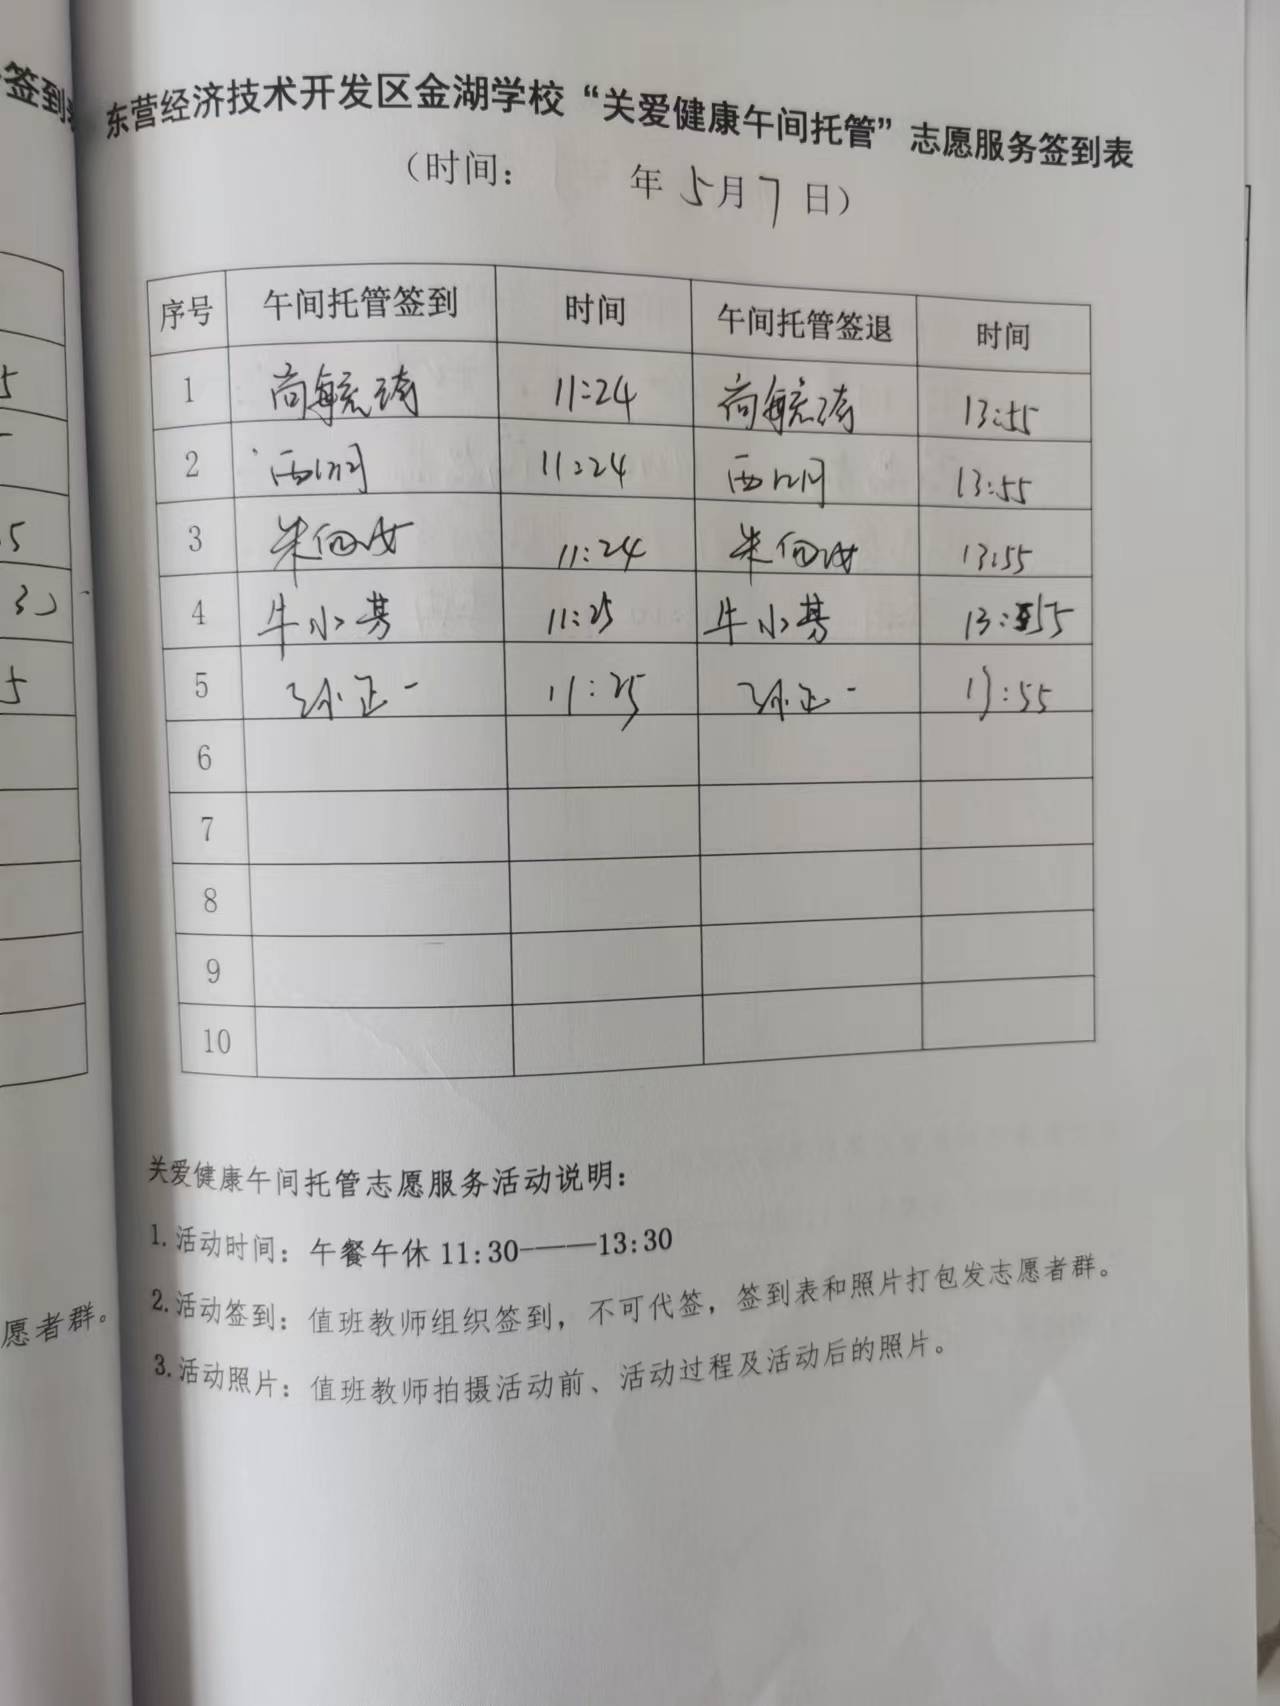 签到表
东营经济技术开发区金湖学校“关爱健康午间托管”志愿服务签到表
（时间： 年5月7日）
序号 午间托管签到 时间 午间托管签退 时间
1 尚毓涛 11:24 尚毓涛 13:55
2 11:24 13:55
3 朱 11:24 朱 13:55
4 牛小芳 11:25 牛小芳 13:55
5 孙正一 11:25 孙正一 13:55
6
7
8
9
10
关爱健康午间托管志愿服务活动说明：
1.活动时间：午餐午休 11:30———13:30
2.活动签到：值班教师组织签到，不可代签，签到表和照片打包发志愿者群。
3.活动照片：值班教师拍摄活动前、活动过程及活动后的照片。
愿者群。